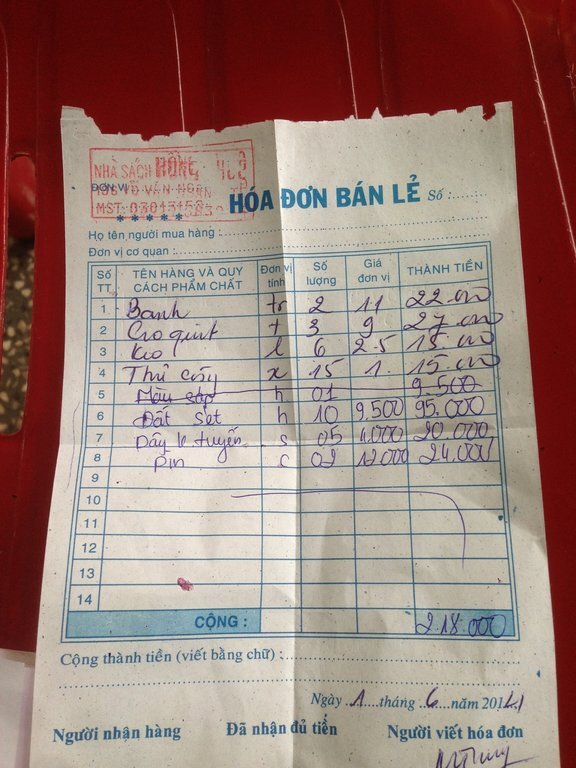 NHÀ SÁCH HỒNG
HÓA ĐƠN BÁN LẺ Số :
ĐƠN VỊ
MST: 03013152
* * * * *
Họ tên người mua hàng :
Đơn vị cơ quan :
Số TT TÊN HÀNG VÀ QUY CÁCH PHẨM CHẤT Đơn vị tính Số lượng Giá đơn vị THÀNH TIỀN
1 Banh tr 2 11 22.000
2 t 3 9 27.000
3 Keo l 6 2.5 15.000
4 Thú x 15 1. 15.000
5 h 01 9.500
6 Đất sét h 10 9,500 95.000
7 Dây s 05 4,000 20.000
8 Pin c 02 12.000 24.000
9
10
11
12
13
14
CỘNG : 218.000
Cộng thành tiền (viết bằng chữ) :
Ngày 1 tháng 6 năm 2014
Người nhận hàng Đã nhận đủ tiền Người viết hóa đơn